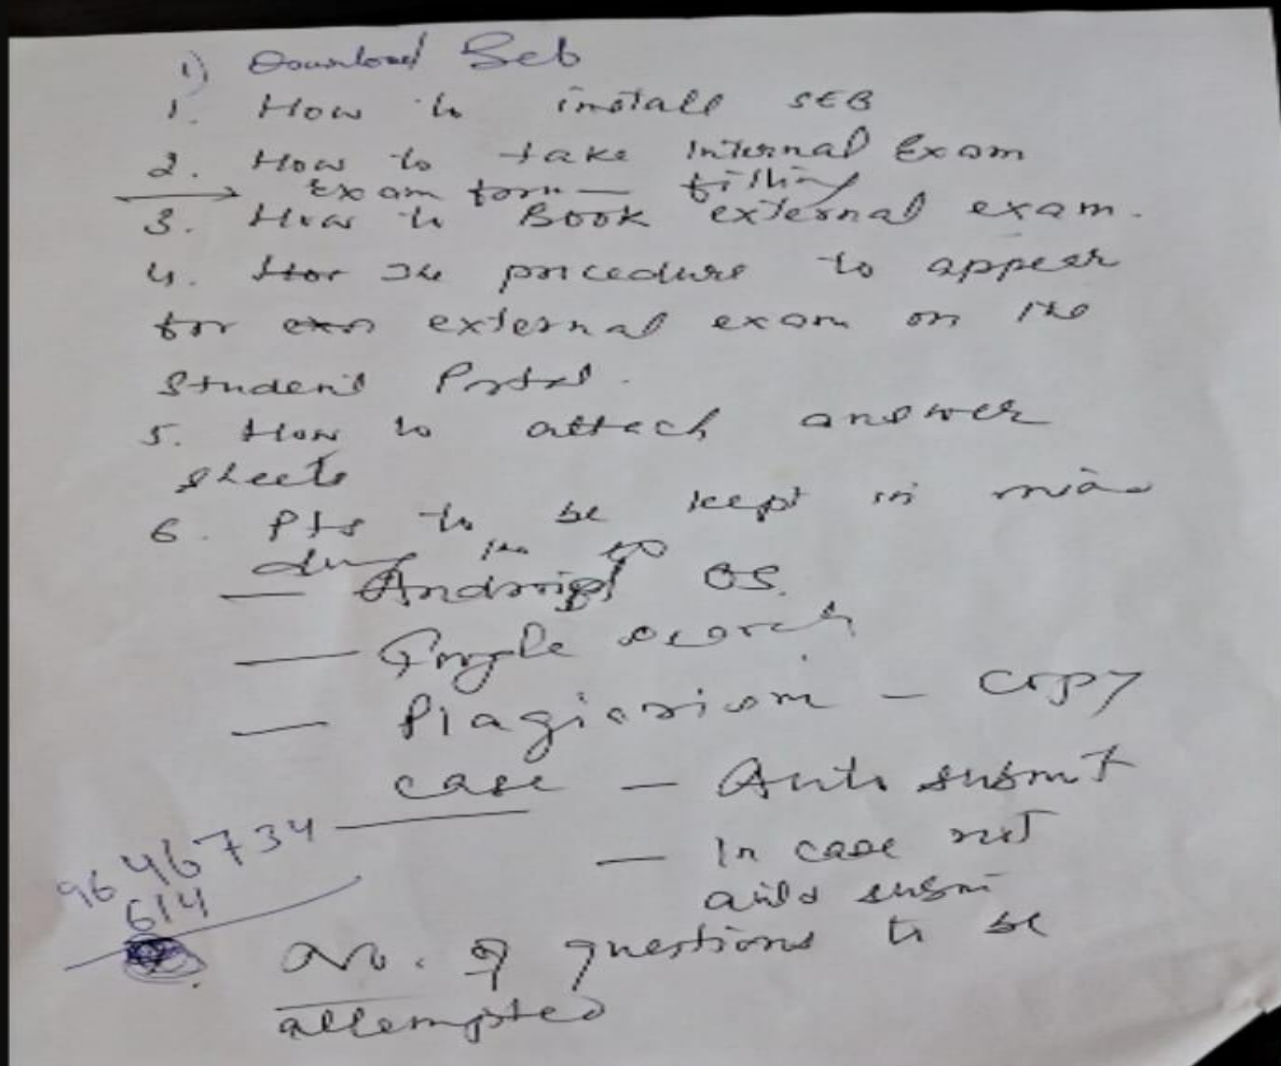 1) Download Seb
1. How to install SEB
2. How to take Internal Exam
Exam form — filling
3. How to Book external exam.
4. Hor The procedure to appear
for exa external exam on the
Student Portal.
5. How to attach answer
sheets
6. Pts to be kept in mind
during the
— Android OS.
— Google search
— Plagiarism - copy
case — Auto submit
— In case not
auto submi
9646734
614
No. of questions to be
attempted